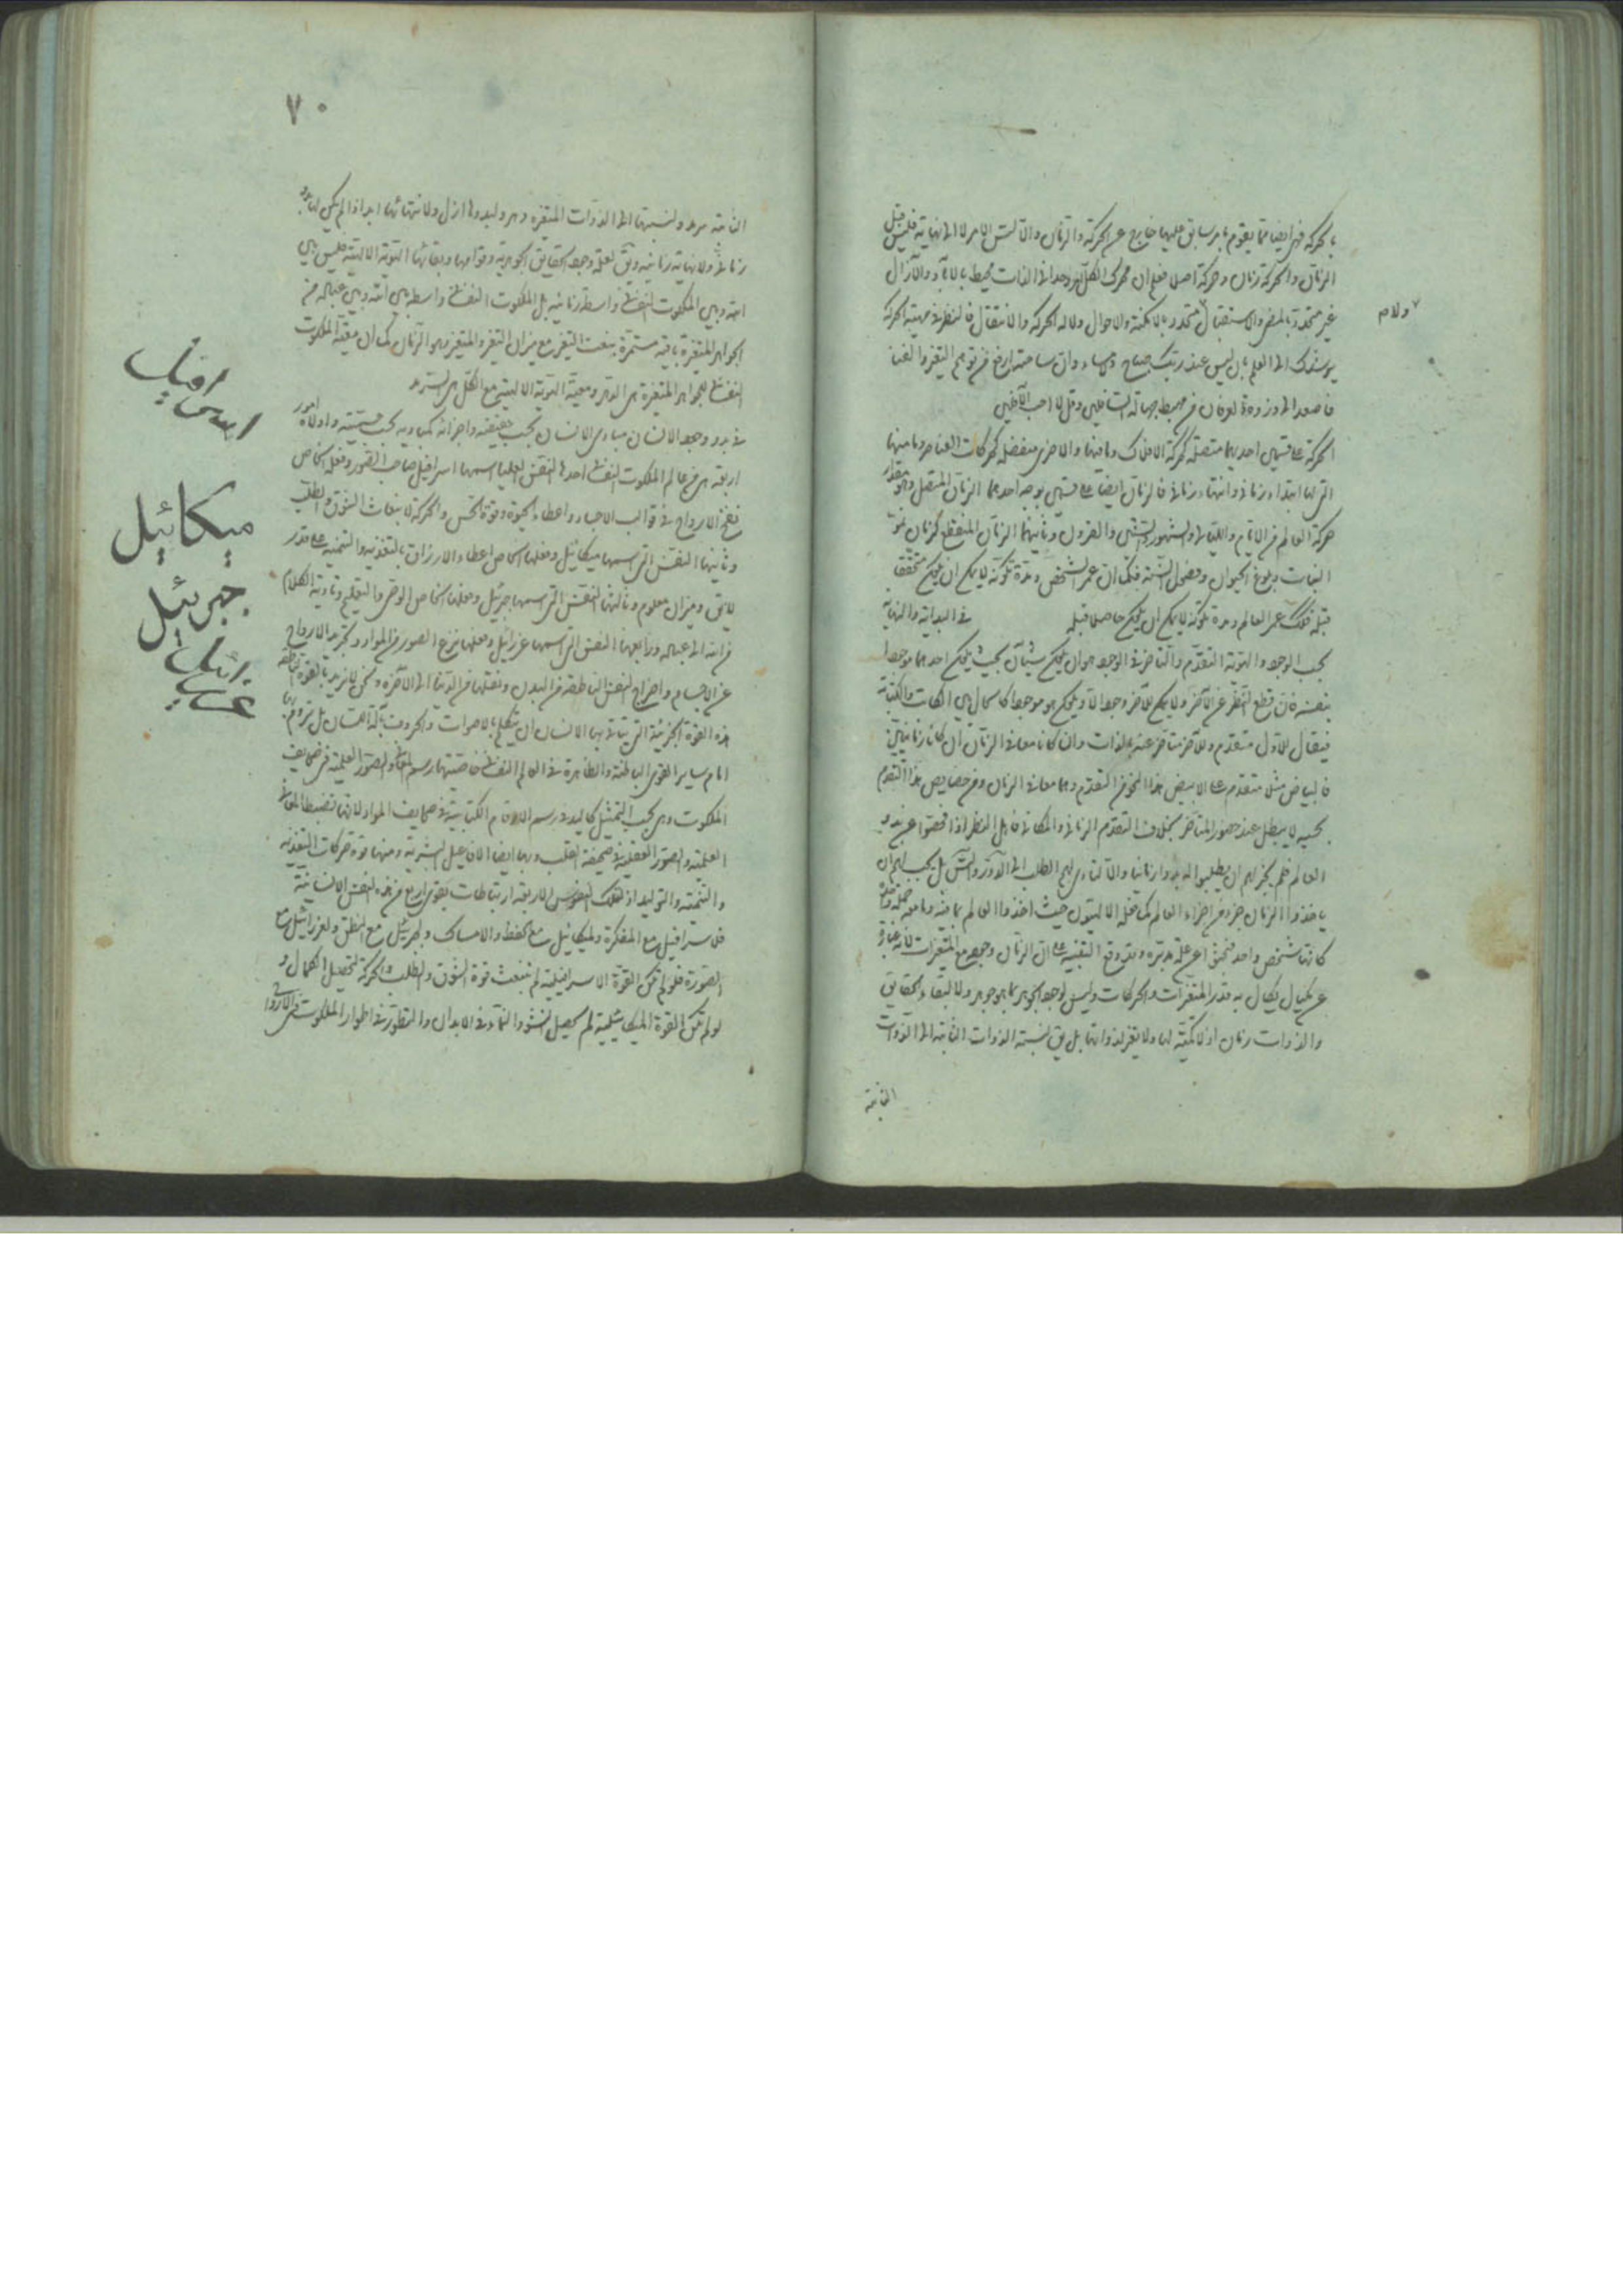 بالحركة فهى ايضا مما يقوم بامر سابق عليها خارج عن الحركة والزمان والا لتسلسل الامر لا الى نهاية فليس قبل
الزمان والحركة زمان وحركة اصلا فعلم ان محرك الكل هو وحدانى الذات محيط بالآباد والآزال
غير متجدد بالمضى والاستقبال ولا متجدد بالامكنة والاحوال ولا له الحركة والانتقال فالنظر فى مهية الحركة
يوصلك الى العلم بان ليس عند ربك صباح ومساء وان ساحته ارفع من توهم التغير والفناء
فاصعد الى ذروة العرفان من مهبط جهالة السافلين وقل لا احب الآفلين
الحركة على قسمين احديهما متصلة كحركة الافلاك وما فيها والاخرى منفصلة كحركات العناصر وما منها
التى لها ابتداء زمانى وانتهاء زمانى فالزمان ايضا على قسمين بوجه احدهما الزمان المتصل وهو مقدار
حركة العالم من الايام والليالى والشهور والسنين والقرون وثانيهما الزمان المنقطع كزمان نمو
النبات وبلوغ الحيوان وفصول السنة فكما ان عمر الشخص ومدة تكونه لا يمكن ان يكون متحققا
قبله فكذلك عمر العالم ومدة تكونه لا يمكن ان يكون حاصلا قبله فى البداية والنهاية
بحسب الوجود والهوية التقدم والتاخر فى الوجود هو ان يكون شيئان بحيث يكون احدهما موجودا
بنفسه فان قطع النظر عن الآخر ولا يمكن للآخر وجود الا ويكون هو موجودا كالحال بين الكاتب والكتابة
فيقال للاول متقدم وللآخر متاخر عنه بالذات وان كانا معا فى الزمان ان كانا زمانيين
فالبياض مثلا متقدم على الابيض هذا النحو من التقدم وهما معا فى الزمان ومن خصايص هذا التقدم
بحسبه لا يبطل عند حضور المتاخر بخلاف التقدم الزمانى والمكانى فاهل النظر اذا فحصوا عن بدو
العالم فلم يجز لهم ان يطلبوا له بدوا زمانيا والا لتادى بهم الطلب الى الدور والتسلسل بل يجب لهم ان
ياخذوا الزمان جزء من اجزاء العالم كما فعله الالهيون حيث اخذوا العالم بما فيه وما معه جملة واحدة
كانها شخص واحد فبحثوا عن علة مدبرة وقد وقع التنبيه على ان الزمان وجوده مع المتغيرات لانه عبارة
عن مكيال يكال به قدر المتغيرات والحركات وليس لوجود الجوهر بما هو جوهر ولا لبقاء الحقايق
والذوات زمان اذ لا كمية لها ولا تغير لذواتها بل يق نسبة الذوات الثابتة الى الذوات
الثابتة
ولا م
٧٠
الثابتة سرمد ونسبتها الى الذوات المتغيره دهر وليدوها ازل ولانتهائها ابد اذ لم يكن لها بدو
زمانى ولا نهاية زمانية ويق لعلة وجود الحقايق الجوهرية وقوامها وبقائها الهوية الالهية فليس بين
الله وبين الملكوت النفسانى واسطة زمانية بل الملكوت النفسانى واسطة بين الله وبين عباده فى
الجواهر المتغيرة باقية مستمرة بنعت التغير مع ميزان التغير والمتغير وهو الزمان كما ان معية الملكوت
النفسانى للجواهر المتغيرة هى الدهر ومعية الهوية الالهية مع الكل هى السرمد
فى بدو وجود الانسان مبادى الانسان بحسب حقيقته واجزائه كمباديه بحسب جسميته واولاه امور
اربعة هى من عالم الملكوت النفسانى احدها النفس العليا اسمها اسرافيل صاحب الصور وفعله الخاص
نفخ الارواح فى قوالب الاجساد واعطاء الحيوة وقوة الحس والحركة لانبعاث الشوق والطلب
وثانيها النفس التى اسمها ميكائيل وفعلها الخاص اعطاء الارزاق بالتغذيه والتنميه على قدر
لايق وميزان معلوم وثالثها النفس التى اسمها جبرئيل وفعلها الخاص الوحى والتعليم وتادية الكلام
من الله الى عباده ورابعها النفس التى اسمها عزرائيل وفعلها نزع الصور من المواد وتجريد الارواح
عن الاجسام واخراج النفس الناطقة من البدن ونقلها من الدنيا الى الآخرة ونحن لا نريد بالقوة الناطقة
هذه القوة الجزئية التى يتاتى بها الانسان ان يتكلم بالاصوات والحروف بآلة اللسان بل نروم بها
امام ساير القوى الباطنة والظاهرة فى العالم النفسانى خاصيتها رسم المعانى والصور العلمية فى صحايف
الملكوت وهى بحسب التمثيل كاليد فى رسم الارقام الكتابية فى صحايف المواد لانها تضبط المعانى
العلمية والصور العقلية فى صحيفة القلب وبها ايضا الافاعيل البشرية ومنها قوة حركات التغذية
والتنمية والتوليد اذ لتلك النفوس الاربعة ارتباطات بقوى اربع من هذه النفس الانسانية
فلاسرافيل مع المفكرة ولميكائيل مع الحفظ والامساك ولجبرئيل مع النطق ولعزرائيل مع
الصورة فلو لم تكن القوة الاسرافيلية لم تنبعث قوة الشوق والطلب والحركة لتحصيل الكمال و
لو لم تكن القوة الميكائيلية لم يحصل النشو والنماء فى الابدان والتطور فى اطوار الملكوت فى الارواح
اسرافيل
ميكائيل
جبرئيل
عزرائيل